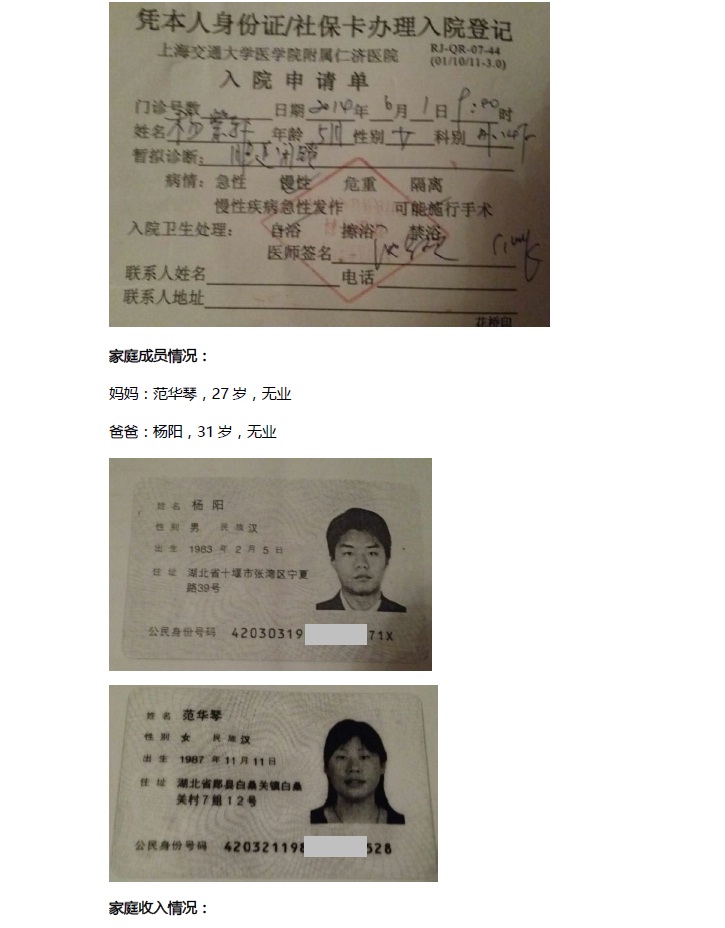 凭本人身份证/社保卡办理入院登记
上海交通大学医学院附属仁济医院
RJ-QR-07-44
(01/10/11-3.0)
入院申请单
门诊号数 日期2014年6月1日9:00时
姓名 杨紫轩 年龄 性别女 科别
暂拟诊断: 胆道闭锁
病情: 急性 慢性 危重 隔离
慢性疾病急性发作 可能施行手术
入院卫生处理: 自浴 擦浴 禁浴
医师签名
联系人姓名 电话
联系人地址
家庭成员情况：
妈妈：范华琴，27岁，无业
爸爸：杨阳，31岁，无业
姓名 杨阳
性别 男 民族 汉
出生 1983年2月5日
住址 湖北省十堰市张湾区宁夏
路39号
公民身份号码 42030319 71X
姓名 范华琴
性别 女 民族 汉
出生 1987年11月11日
住址 湖北省郧县白桑关镇白桑
关村7组12号
公民身份号码 420321198 528
家庭收入情况：